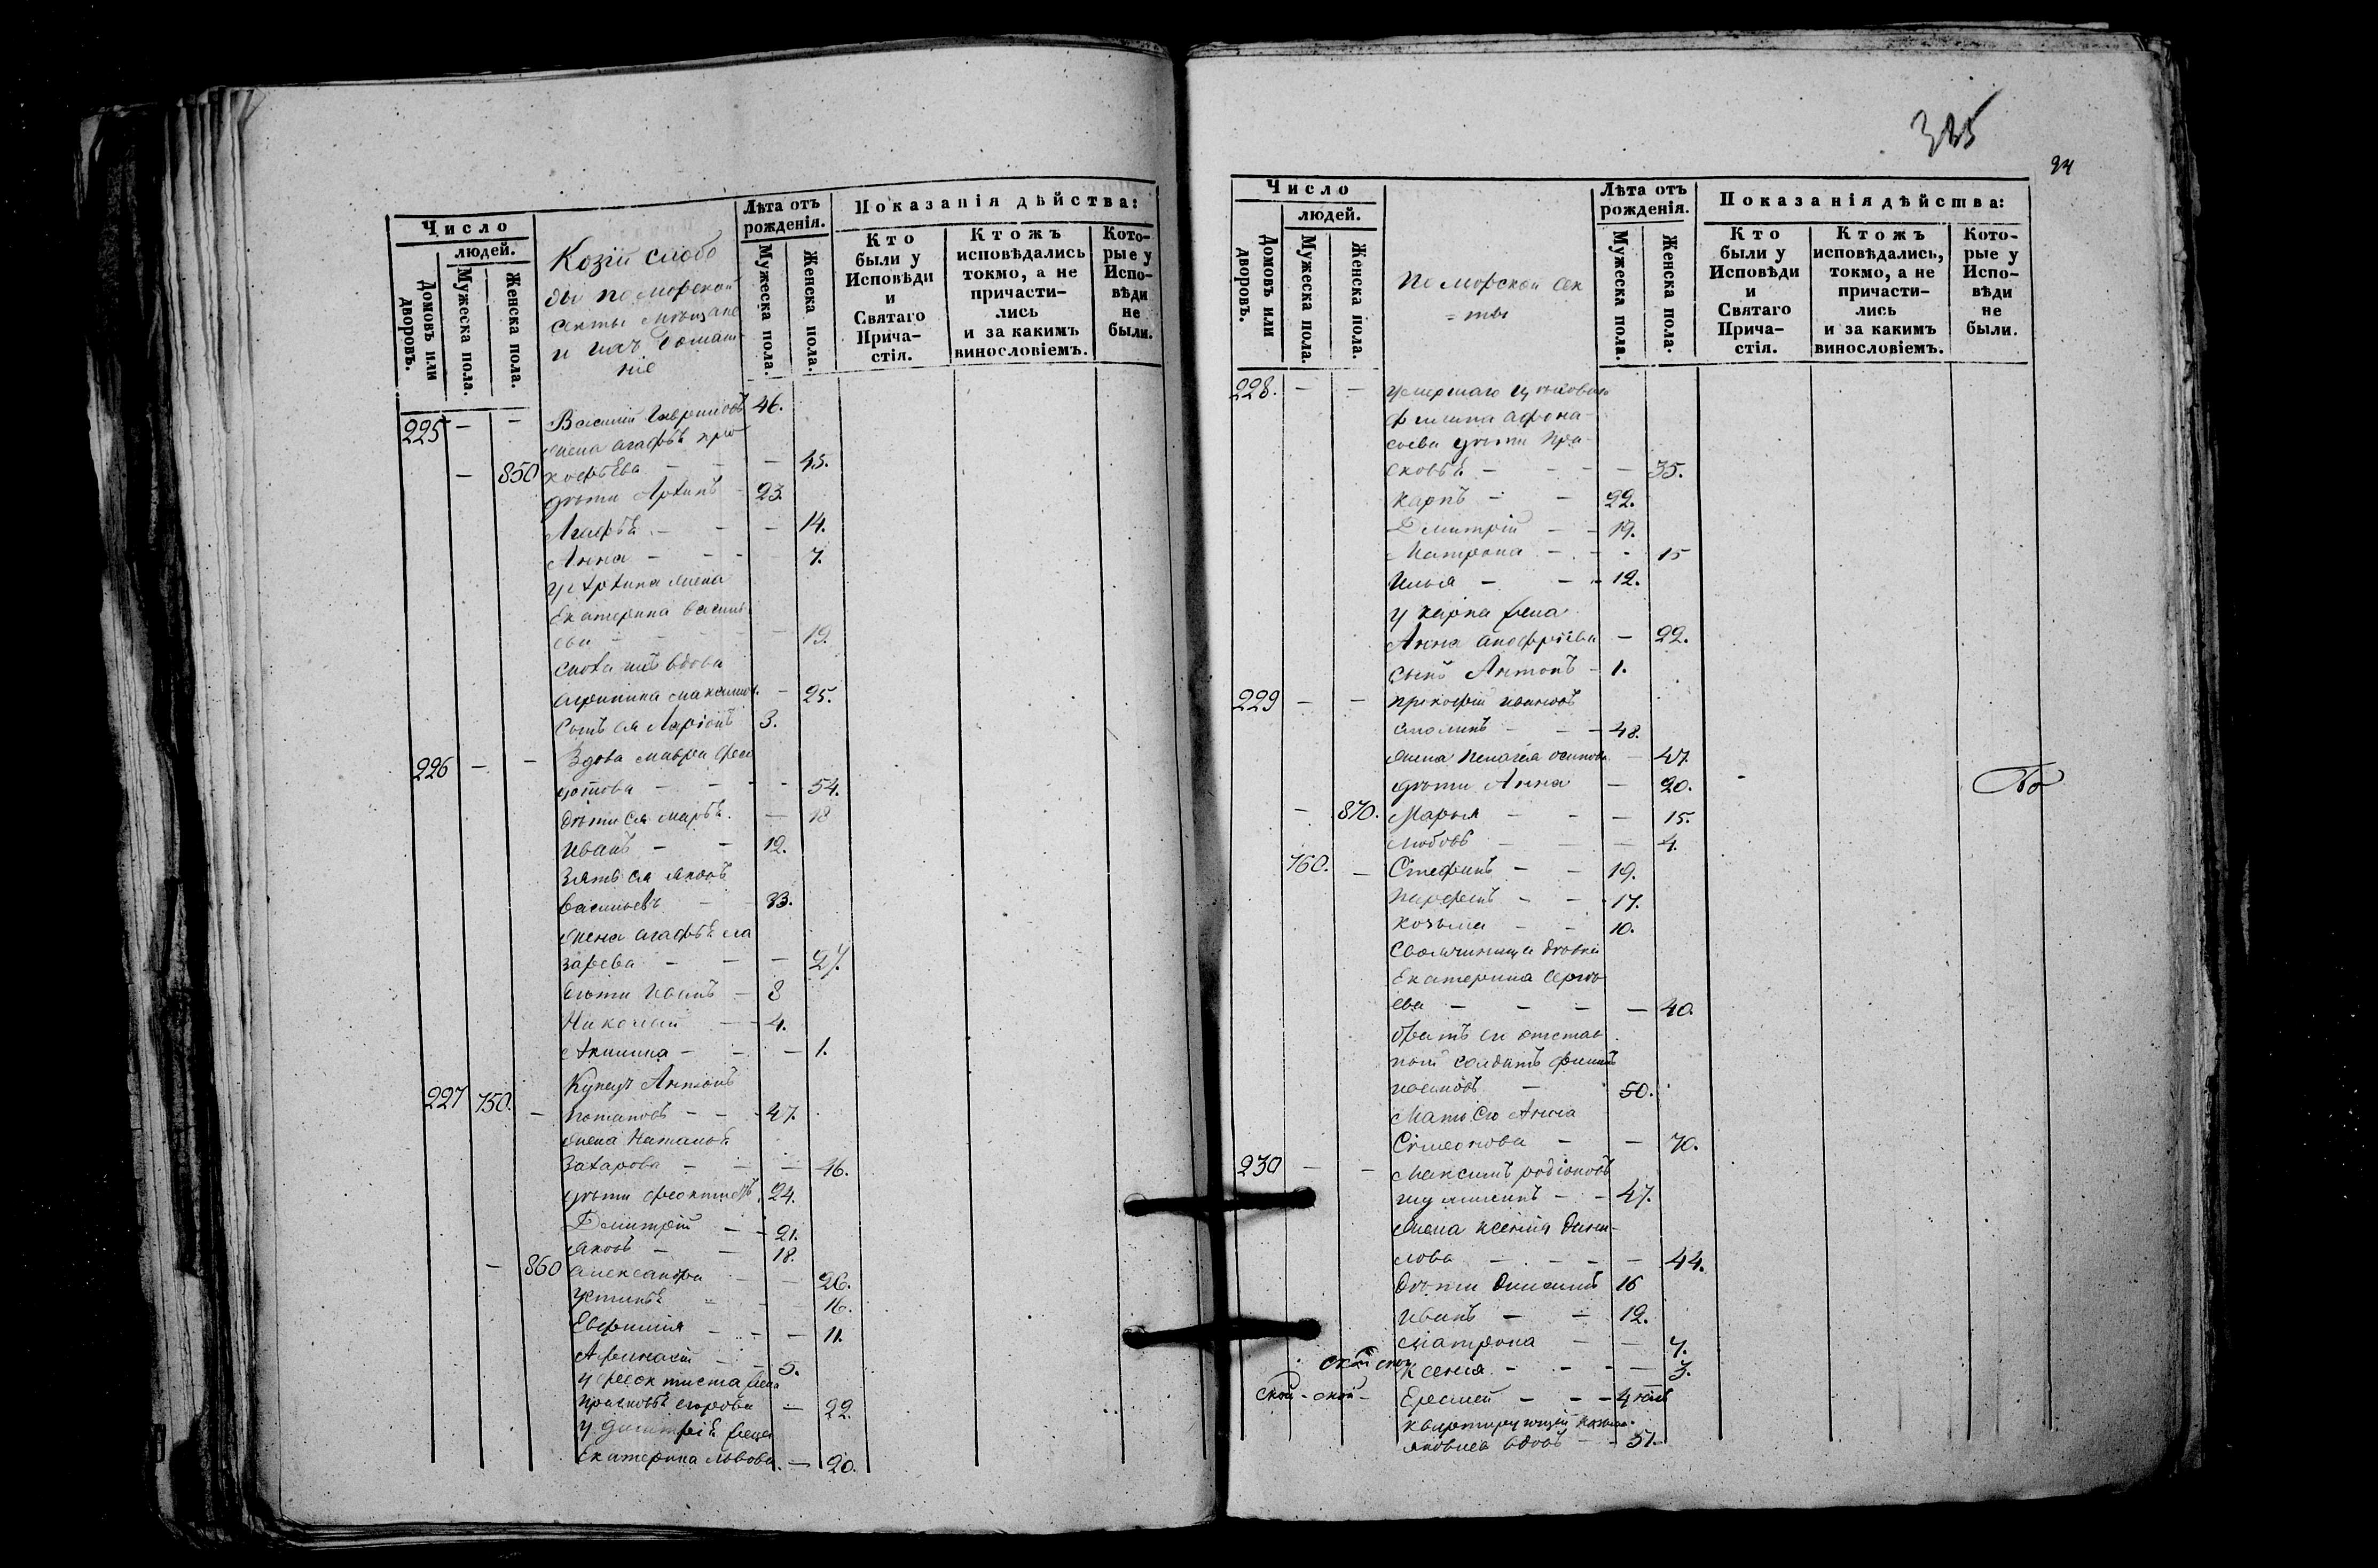 Число
людей.
Домовъ или дворовъ.
Мужеска пола.
Женска пола.
Козій слобо
ды поморской
секты мѣщане
и ихъ домаш
ніе
Лѣта отъ рожденія.
Мужеска пола.
Женска пола.
Показанія дѣйства:
Кто были у Исповѣди и Святаго Прича- стія.
Ктожъ исповѣдались токмо, а не причасти- лись и за какимъ винословіемъ.
Кото- рые у Испо- вѣди не были.
225 — — Василій Гавриловъ 46.
жена Агафья про
— 850 кофьева — — — 45.
дѣти Архипъ — 23.
Агафья — — — 14.
Анна — — — 7.
у Архипа жена
Екатерина Василь
ева — — 19.
сноха ихъ вдова
Максимов. — 25.
Сынъ ея Ларіонъ 3.
226 — — Вдова Мавра Фео
дотова — — — 54.
дѣти ея Марья — 18
Иванъ — — 12.
Зять ея Яковъ
Васильевъ — — 33.
жена Агафья Ла
зарева — — — 27.
дѣти Иванъ — 8
Николай — — 4.
Акилина — — — 1.
Купецъ Антонъ
227 750. — Потаповъ — — 47.
жена Наталья
Захарова — — — 46.
дѣти Феоктистъ 24.
Дмитрій — — 21.
Яковъ — — 18.
— 860 Александра — — 26.
Устинья — — 16.
Евфимия — — — 11.
Афанасій — — 5.
у Феоктиста жена
Прасковья Егорова — 22.
у Дмитрія жена
Екатерина Львова — 20.
335
94
Число
людей.
Домовъ или дворовъ.
Мужеска пола.
Женска пола.
Поморской сек
= ты
Лѣта отъ рожденія.
Мужеска пола.
Женска пола.
Показанія дѣйства:
Кто были у Исповѣди и Святаго Прича- стія.
Ктожъ исповѣдались, токмо, а не причасти- лись и за какимъ винословіемъ.
Кото- рые у Испо- вѣди не были.
228. — — умершаго
Филипа Афона-
сьева дѣти Пра-
сковья — — — 35.
Карпъ — — 22.
Дмитрій — — 19.
Матрона — — — 15
Илья — — 12.
у Карпа жена
Анна — 22.
сынъ Антонъ — 1.
229 — — Прокофій Ивановъ
— — 48.
жена Пелагея Осипова — 47.
дѣти Анна — 20.
— 870. Марья — — — 15.
Любовь — — 4.
760. — Стефанъ — — 19.
Парфенъ — — 17.
Козьма — — 10.
Своячиница дѣвка
Екатерина Сергѣ
ева — — — — 40.
братъ ея отстав
ной солдатъ Филипъ
— 50.
Мать его Анна
Симеонова — — 70.
230 — — Максимъ Родіоновъ
— — 47.
жена Ксения Дани-
лова — — — — 44.
дѣти 16
Иванъ — — 12.
Матрона — — 7.
Ксения — — — — 3.
Еремей — — — 4
квартирующій
Яковлевъ вдовъ — — 51.
ской - ской -